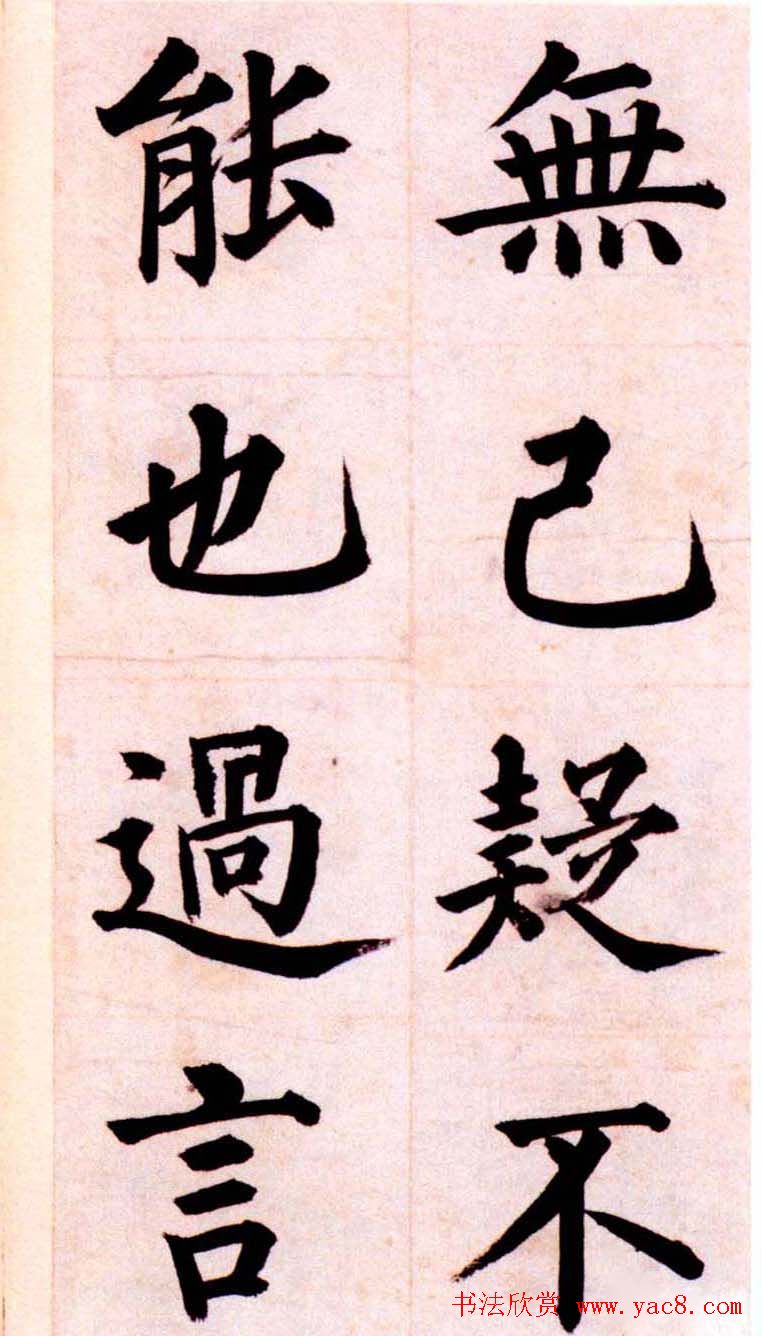 無己疑不
能也過言
书法欣赏 www.yac8.com